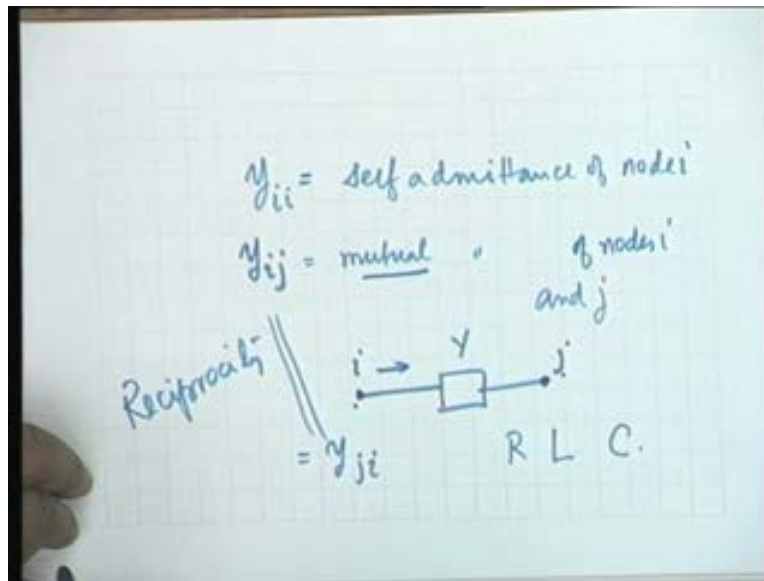 y_ii = self admittance of node i
y_ij = mutual " of nodes i
and j
Reciprocity
i → Y j
= y_ji
R L C.